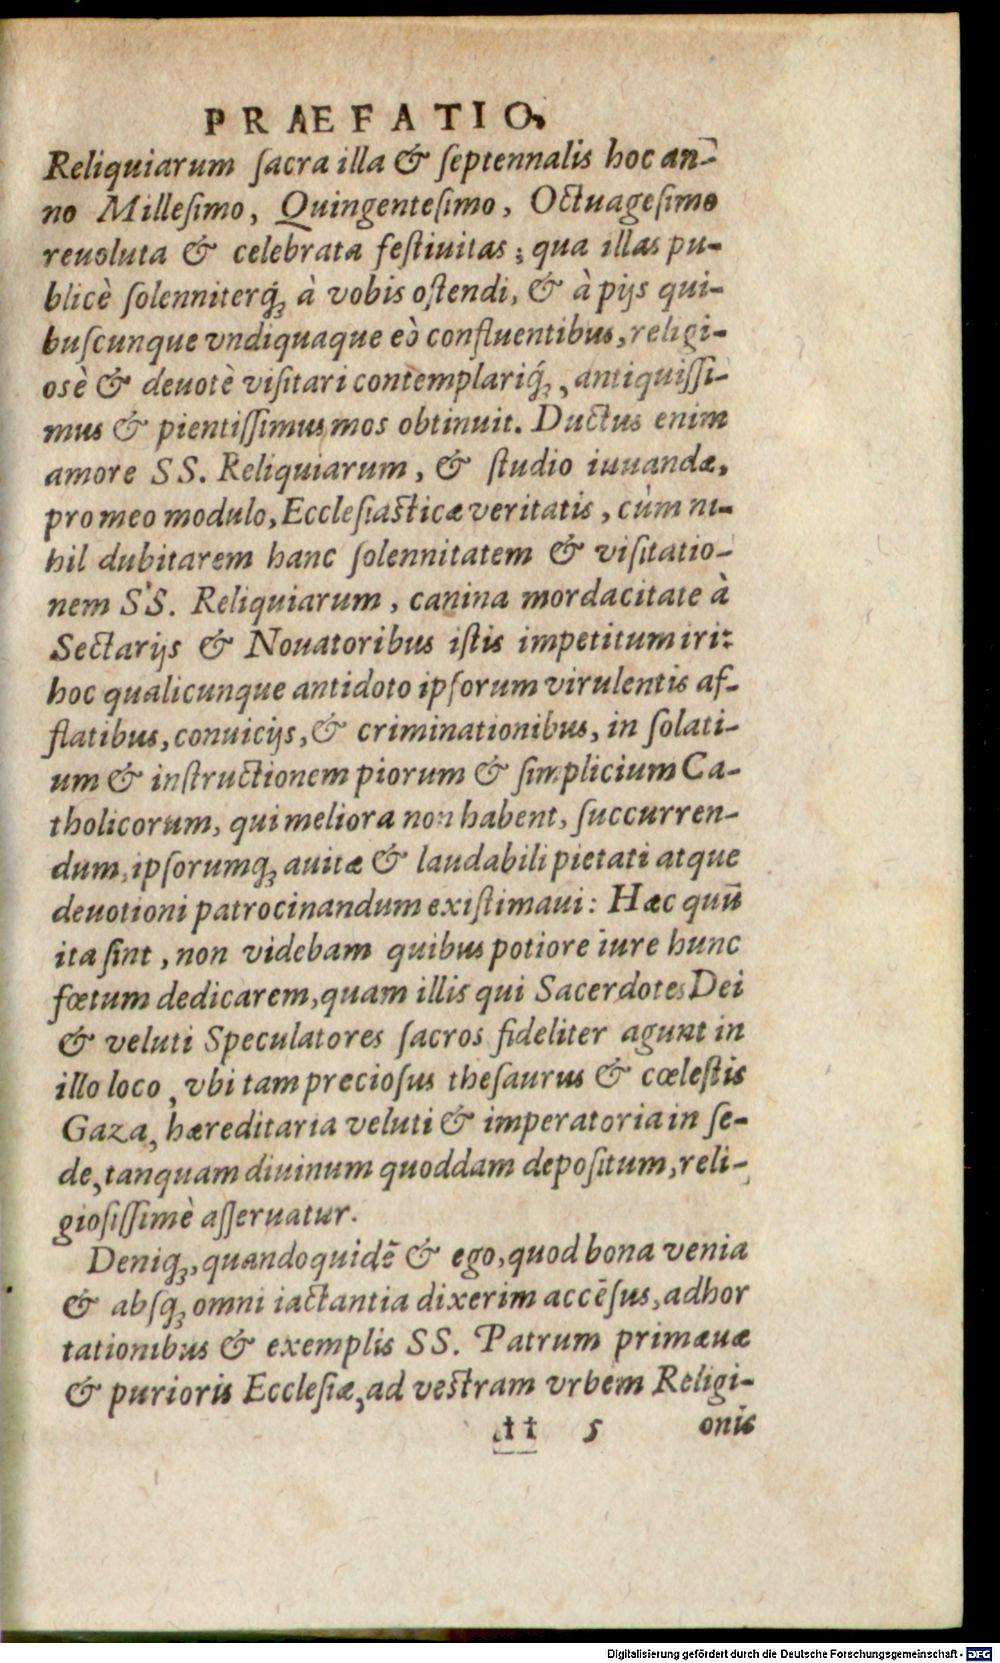 PRAEFATIO.
Reliquiarum ſacra illa & ſeptennalis hoc an-
no Milleſimo, Quingenteſimo, Octuageſimo
reuoluta & celebrata feſtiuitas; qua illas pu-
blicè ſolenniterq́ꝫ à vobis oſtendi, & à pijs qui-
buſcunque vndiquaque eò confluentibus, religi-
osè & deuotè viſitari contemplariq́ꝫ, antiquiſſi-
mus & pientiſſimus mos obtinuit. Ductus enim
amore SS. Reliquiarum, & ſtudio iuuandæ,
pro meo modulo, Eccleſiasticæ veritatis, cùm ni-
hil dubitarem hanc ſolennitatem & viſitatio-
nem SS. Reliquiarum, canina mordacitate à
Sectarijs & Nouatoribus iſtis impetitum iri:
hoc qualicunque antidoto ipſorum virulentis af-
flatibus, conuicijs, & criminationibus, in ſolati-
um & inſtructionem piorum & ſimplicium Ca-
tholicorum, qui meliora non habent, ſuccurren-
dum, ipſorumqꝫ auitæ & laudabili pietati atque
deuotioni patrocinandum exiſtimaui: Hæc quū
ita ſint, non videbam quibus potiore iure hunc
fœtum dedicarem, quam illis qui Sacerdotes Dei
& veluti Speculatores ſacros fideliter agunt in
illo loco, vbi tam precioſus theſaurus & cœleſtis
Gaza, hæreditaria veluti & imperatoria in ſe-
de, tanquam diuinum quoddam depoſitum, reli-
gioſiſſimè aſſeruatur.
Deniqꝫ, quandoquidē & ego, quod bona venia
& abſqꝫ omni iactantia dixerim accēſus, adhor
tationibus & exemplis SS. Patrum primæuæ
& purioris Eccleſiæ, ad vestram vrbem Religi-
†† 5 onis
Digitalisierung gefördert durch die Deutsche Forschungsgemeinschaft - DFG